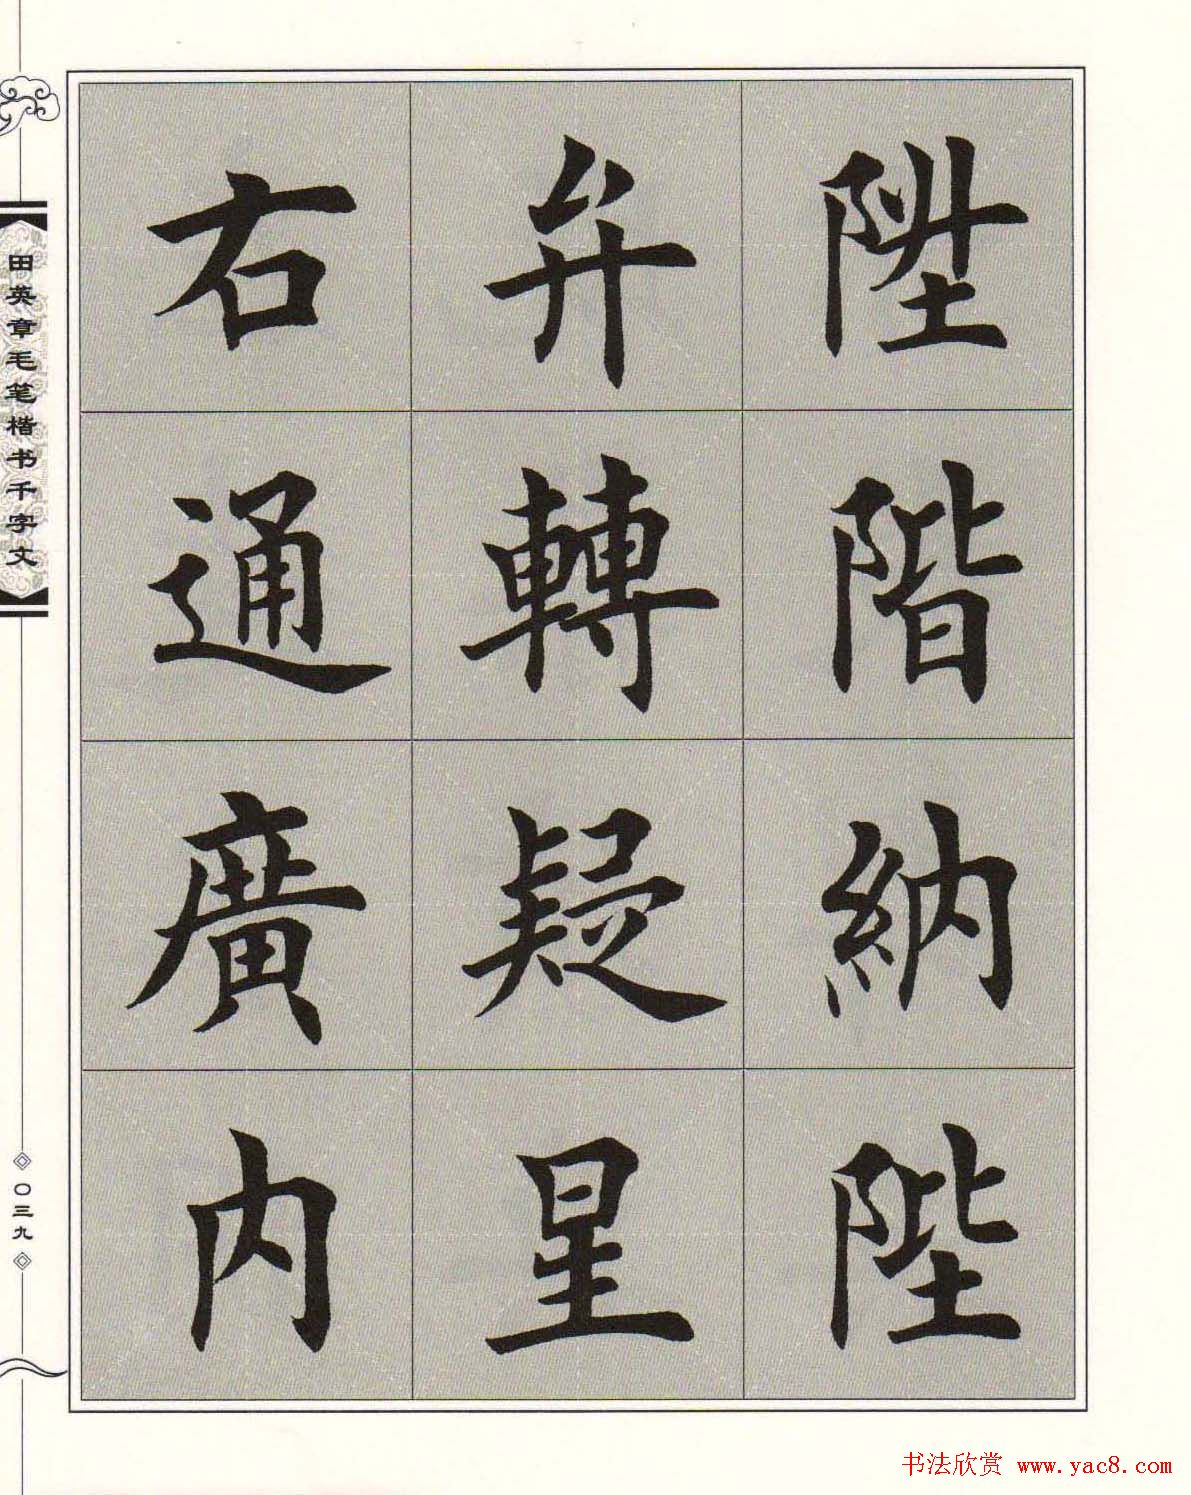 陞階納陛
弁轉疑星
右通廣内
田英章毛笔楷书千字文
〇三九
书法欣赏 www.yac8.com